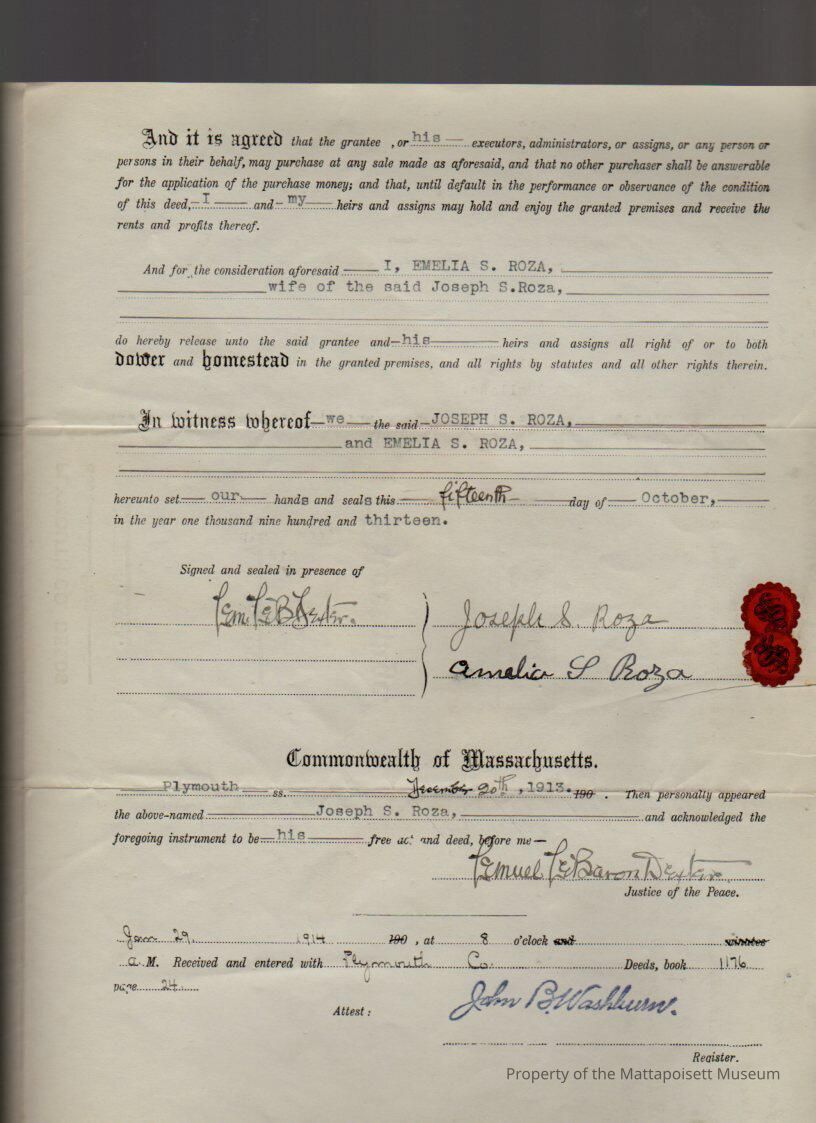 And it is agreed that the grantee , or his executors, administrators, or assigns, or any person or
persons in their behalf, may purchase at any sale made as aforesaid, and that no other purchaser shall be answerable
for the application of the purchase money; and that, until default in the performance or observance of the condition
of this deed, I and my heirs and assigns may hold and enjoy the granted premises and receive the
rents and profits thereof.
And for the consideration aforesaid I, EMELIA S. ROZA,
wife of the said Joseph S.Roza,
do hereby release unto the said grantee and his heirs and assigns all right of or to both
dower and homestead in the granted premises, and all rights by statutes and all other rights therein.
In witness whereof we the said JOSEPH S. ROZA,
and EMELIA S. ROZA,
hereunto set our hands and seals this fifteenth day of October,
in the year one thousand nine hundred and thirteen.
Signed and sealed in presence of
Lem. LeB. Dexter.
Joseph S. Roza
Amelia S Roza
Commonwealth of Massachusetts.
Plymouth ss. December 20th, 1913. 190 . Then personally appeared
the above-named Joseph S. Roza, and acknowledged the
foregoing instrument to be his free act and deed, before me—
Lemuel LeBaron Dexter
Justice of the Peace.
Jan. 29. 1914 190 , at 8 o'clock and minutes
a. M. Received and entered with Plymouth Co. Deeds, book 1176
page 24
Attest: John B. Washburn.
Register.
Property of the Mattapoisett Museum